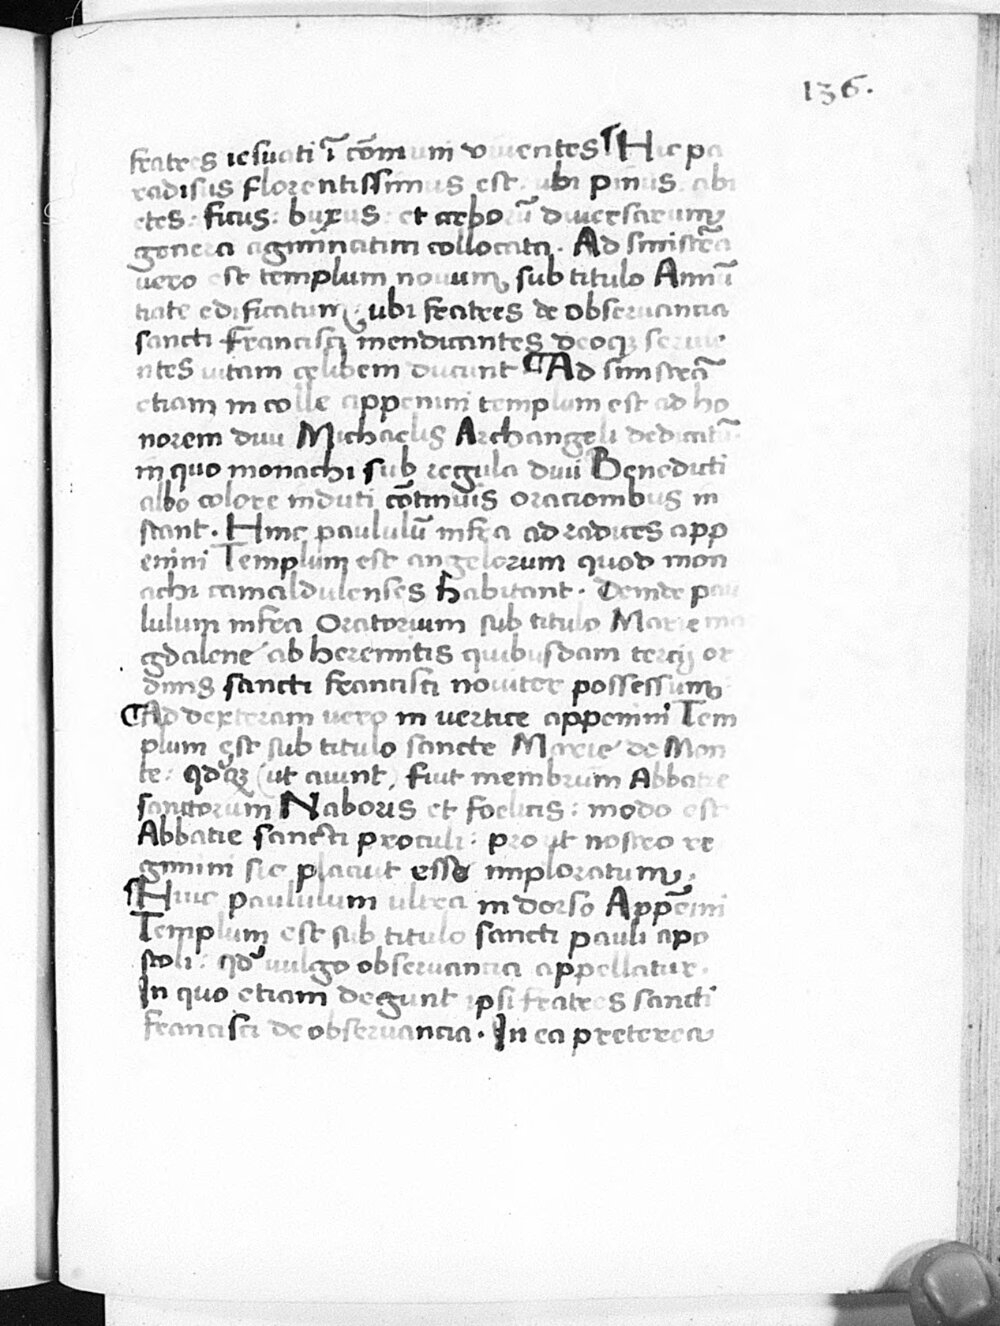 136.
fratres iesuati ī cōmuni viventes ¶Hic pa
radisus florentissimus est. ubi pinus. abi
etes: ficus: buxus: et arborū diversarum
genera agminatim collocata. Ad sinistrā
vero est templum novum, sub titulo Annū
tiate edificatum: ubi fratres de observancia
sancti Francisci mendicantes deoqꝫ servie
ntes vitam celibem ducunt ¶Ad sinistrā
etiam in colle appenini templum est ad ho
norem divi Michaelis Archangeli dedicatū.
in quo monachi sub regula divi Benedicti
albo colore induti cōtinuis orationibus in
stant. Hinc paululū infra ad radices app
enini Templum est angelorum quod mon
achi camaldulenses habitant. Deinde pau
lulum infra Oratorium sub titulo Marie ma
gdalene ab heremitis quibusdam tercij or
dinis sancti francisci noviter possessum
¶Ad dexteram vero in vertice appenini Tem
plum est sub titulo sancte Marie de Mon
te: qdqꝫ (ut aiunt) fuit membrum Abbatie
sanctorum Naboris et foelicis: modo est
Abbatie sancti proculi: prout nostro re
gimini sic placuit esse imploratum.
¶Hinc paululum ultra in dorso Appēnini
Templum est sub titulo sancti pauli apo
stoli: qd' vulgo observancia appellatur.
In quo etiam degunt ipsi fratres sancti
francisci de observancia. In ea preterea